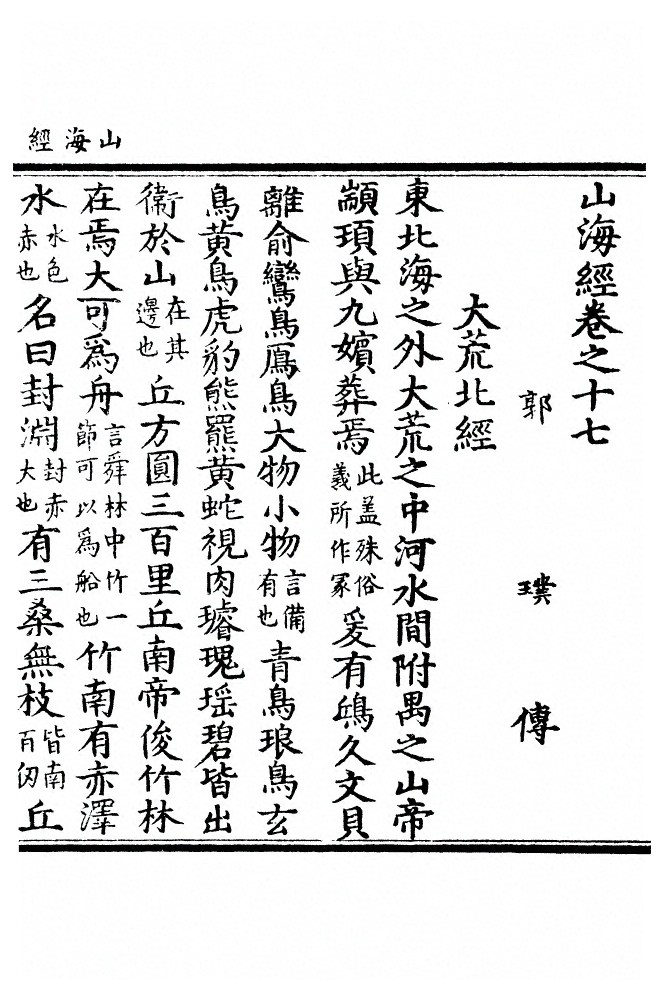 山海經
山海經卷之十七
郭璞傳
大荒北經
東北海之外大荒之中河水間附禺之山帝
顓頊與九嬪葬焉此盖殊俗義所作冢爰有鴟久文貝
離俞鸞鳥鳫鳥大物小物言備有也青鳥琅鳥玄
鳥黄鳥虎豹熊羆黄蛇視肉璿瑰瑶碧皆出
衞於山在其邊也丘方圓三百里丘南帝俊竹林
在焉大可爲舟言舜林中竹一節可以爲船也竹南有赤澤
水水色赤也名曰封淵封赤大也有三桑無枝皆南百仭丘